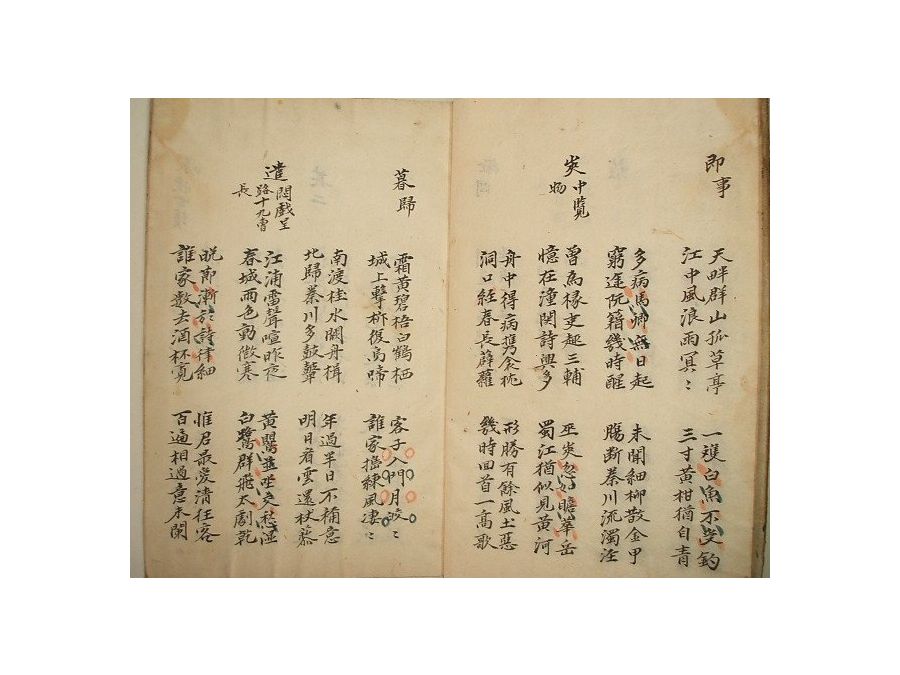 即事
天畔群山孤草亭 一雙白魚不受釣
江中風浪雨冥〻 三寸黄柑猶自青
多病馬卿無日起 未開細柳散金甲
窮途阮籍幾時醒 腸断秦川流濁涇
夾中覧
物
曽為掾吏趨三輔 巫夾忽如瞻華岳
憶在潼関詩興多 蜀江猶似見黄河
舟中得病携衾枕 形勝有餘風土惡
洞口経春長薜蘿 幾時回首一高歌
暮歸
霜黄碧梧白鶴栖 客子入門月皎〻
城上擊柝復烏啼 誰家搗練風凄〻
南渡桂水闕舟楫 年過半日不稱意
北歸秦川多鼓鼙 明日看雲還杖藜
遣悶戯呈
路十九曹
長
江浦雷聲喧昨夜 黄鸝並坐交愁湿
春城雨色動微寒 白鷺群飛太劇乾
晩節漸於詩律細 惟君最愛清狂客
誰家數去酒杯寛 百遍相過意未闌